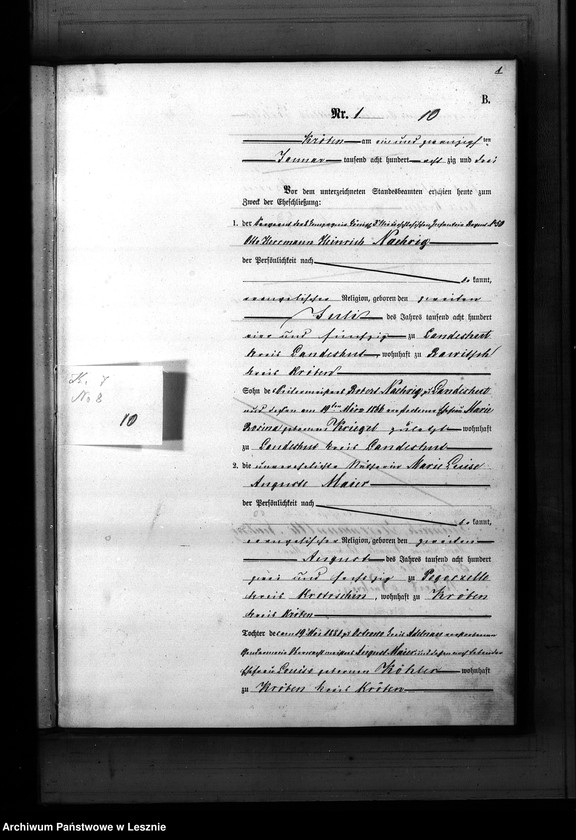 1
B.
Nr. 1 10
Kröben am ein und zwanzigsten
Januar tausend acht hundert acht zig und drei
Vor dem unterzeichneten Standesbeamten erschien heute zum
Zweck der Eheschließung:
1. der Sergeant der Compagnie Infanterie
Otto Herrmann Heinrich Naehrig
der Persönlichkeit nach
be kannt,
evangelischer Religion, geboren den zweiten
Juli des Jahres tausend acht hundert
vier und fünfzig zu Landeshut
Kreis Landeshut, wohnhaft zu Rawitsch
Kreis Kröben
Sohn des Robert Naehrig zu Landeshut
und dessen am 19ten März verstorbenen Ehefrau Marie
Rosina geborenen Kriegel zuletzt wohnhaft
zu Landeshut Kreis Landeshut
2. die unverehelichte Marie Luise
Auguste Maier
der Persönlichkeit nach
be kannt,
evangelischer Religion, geboren den zweiten
August des Jahres tausend acht hundert
zwei und sechszig zu
Kreis Krotoschin, wohnhaft zu Kröben
Kreis Kröben
Tochter des am 19 Kreis Adelnau verstorbenen
Gendarmerie August Maier und dessen noch lebenden
Ehefrau Louise geborenen Köhler wohnhaft
zu Kröben Kreis Kröben
K. 7
No 8
10
Archiwum Państwowe w Lesznie